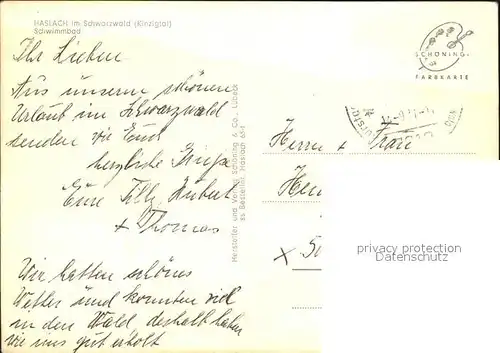 HASLACH im Schwarzwald (Kinzigtal)
Schwimmbad
SCHÖNING-
FARBKARTE
Ihr Lieben
Aus unserm schönen
Urlaub im Schwarzwald
senden wir Euch
herzliche Grüße
Eure Hubert
+ Thomas
Wir hatten schönes
Wetter und konnten viel
in den Wald, deshalb haben
wir uns gut erholt
Hersteller und Verlag Schöning & Co., Lübeck
Bestellnr. Haslach
Herrn + Frau
privacy protection
VeryMailCard.com